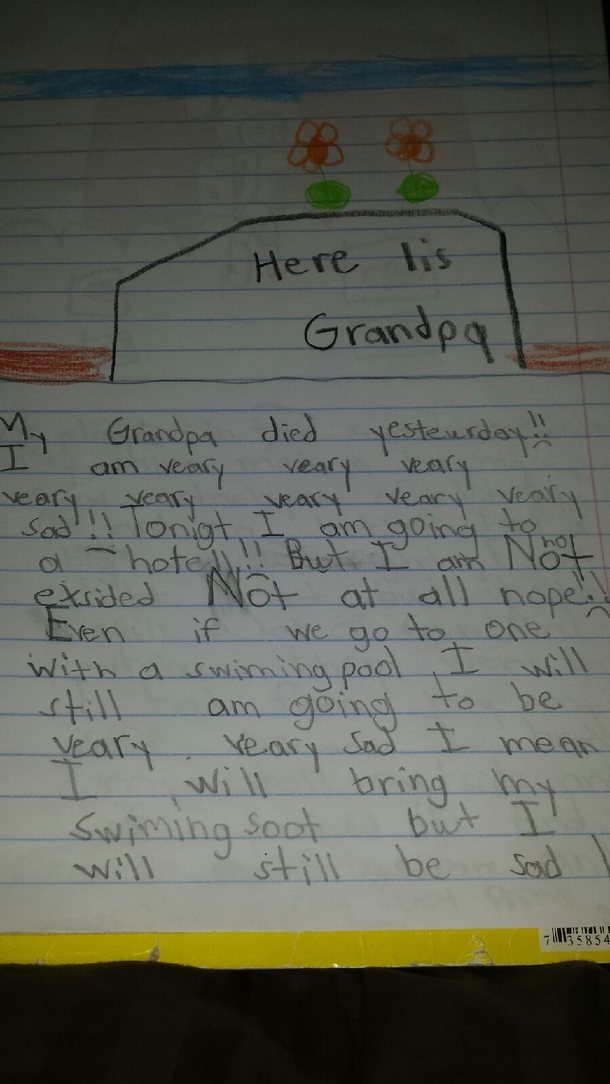 Here lis
Grandpa
My Grandpa died yesteurday!!
I am veary veary veary
veary veary veary veary veary
sad!! Tonigt I am going to
a hotel!!! But I am Not
not
exsided Not at all nope!!
Even if we go to one
with a swiming pool I will
still am going to be
veary veary sad I mean
I will bring my
swiming soot but I
will still be sad!
7 35854